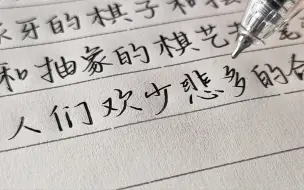 牙的棋子和
和抽象的棋艺
人们欢少悲多的